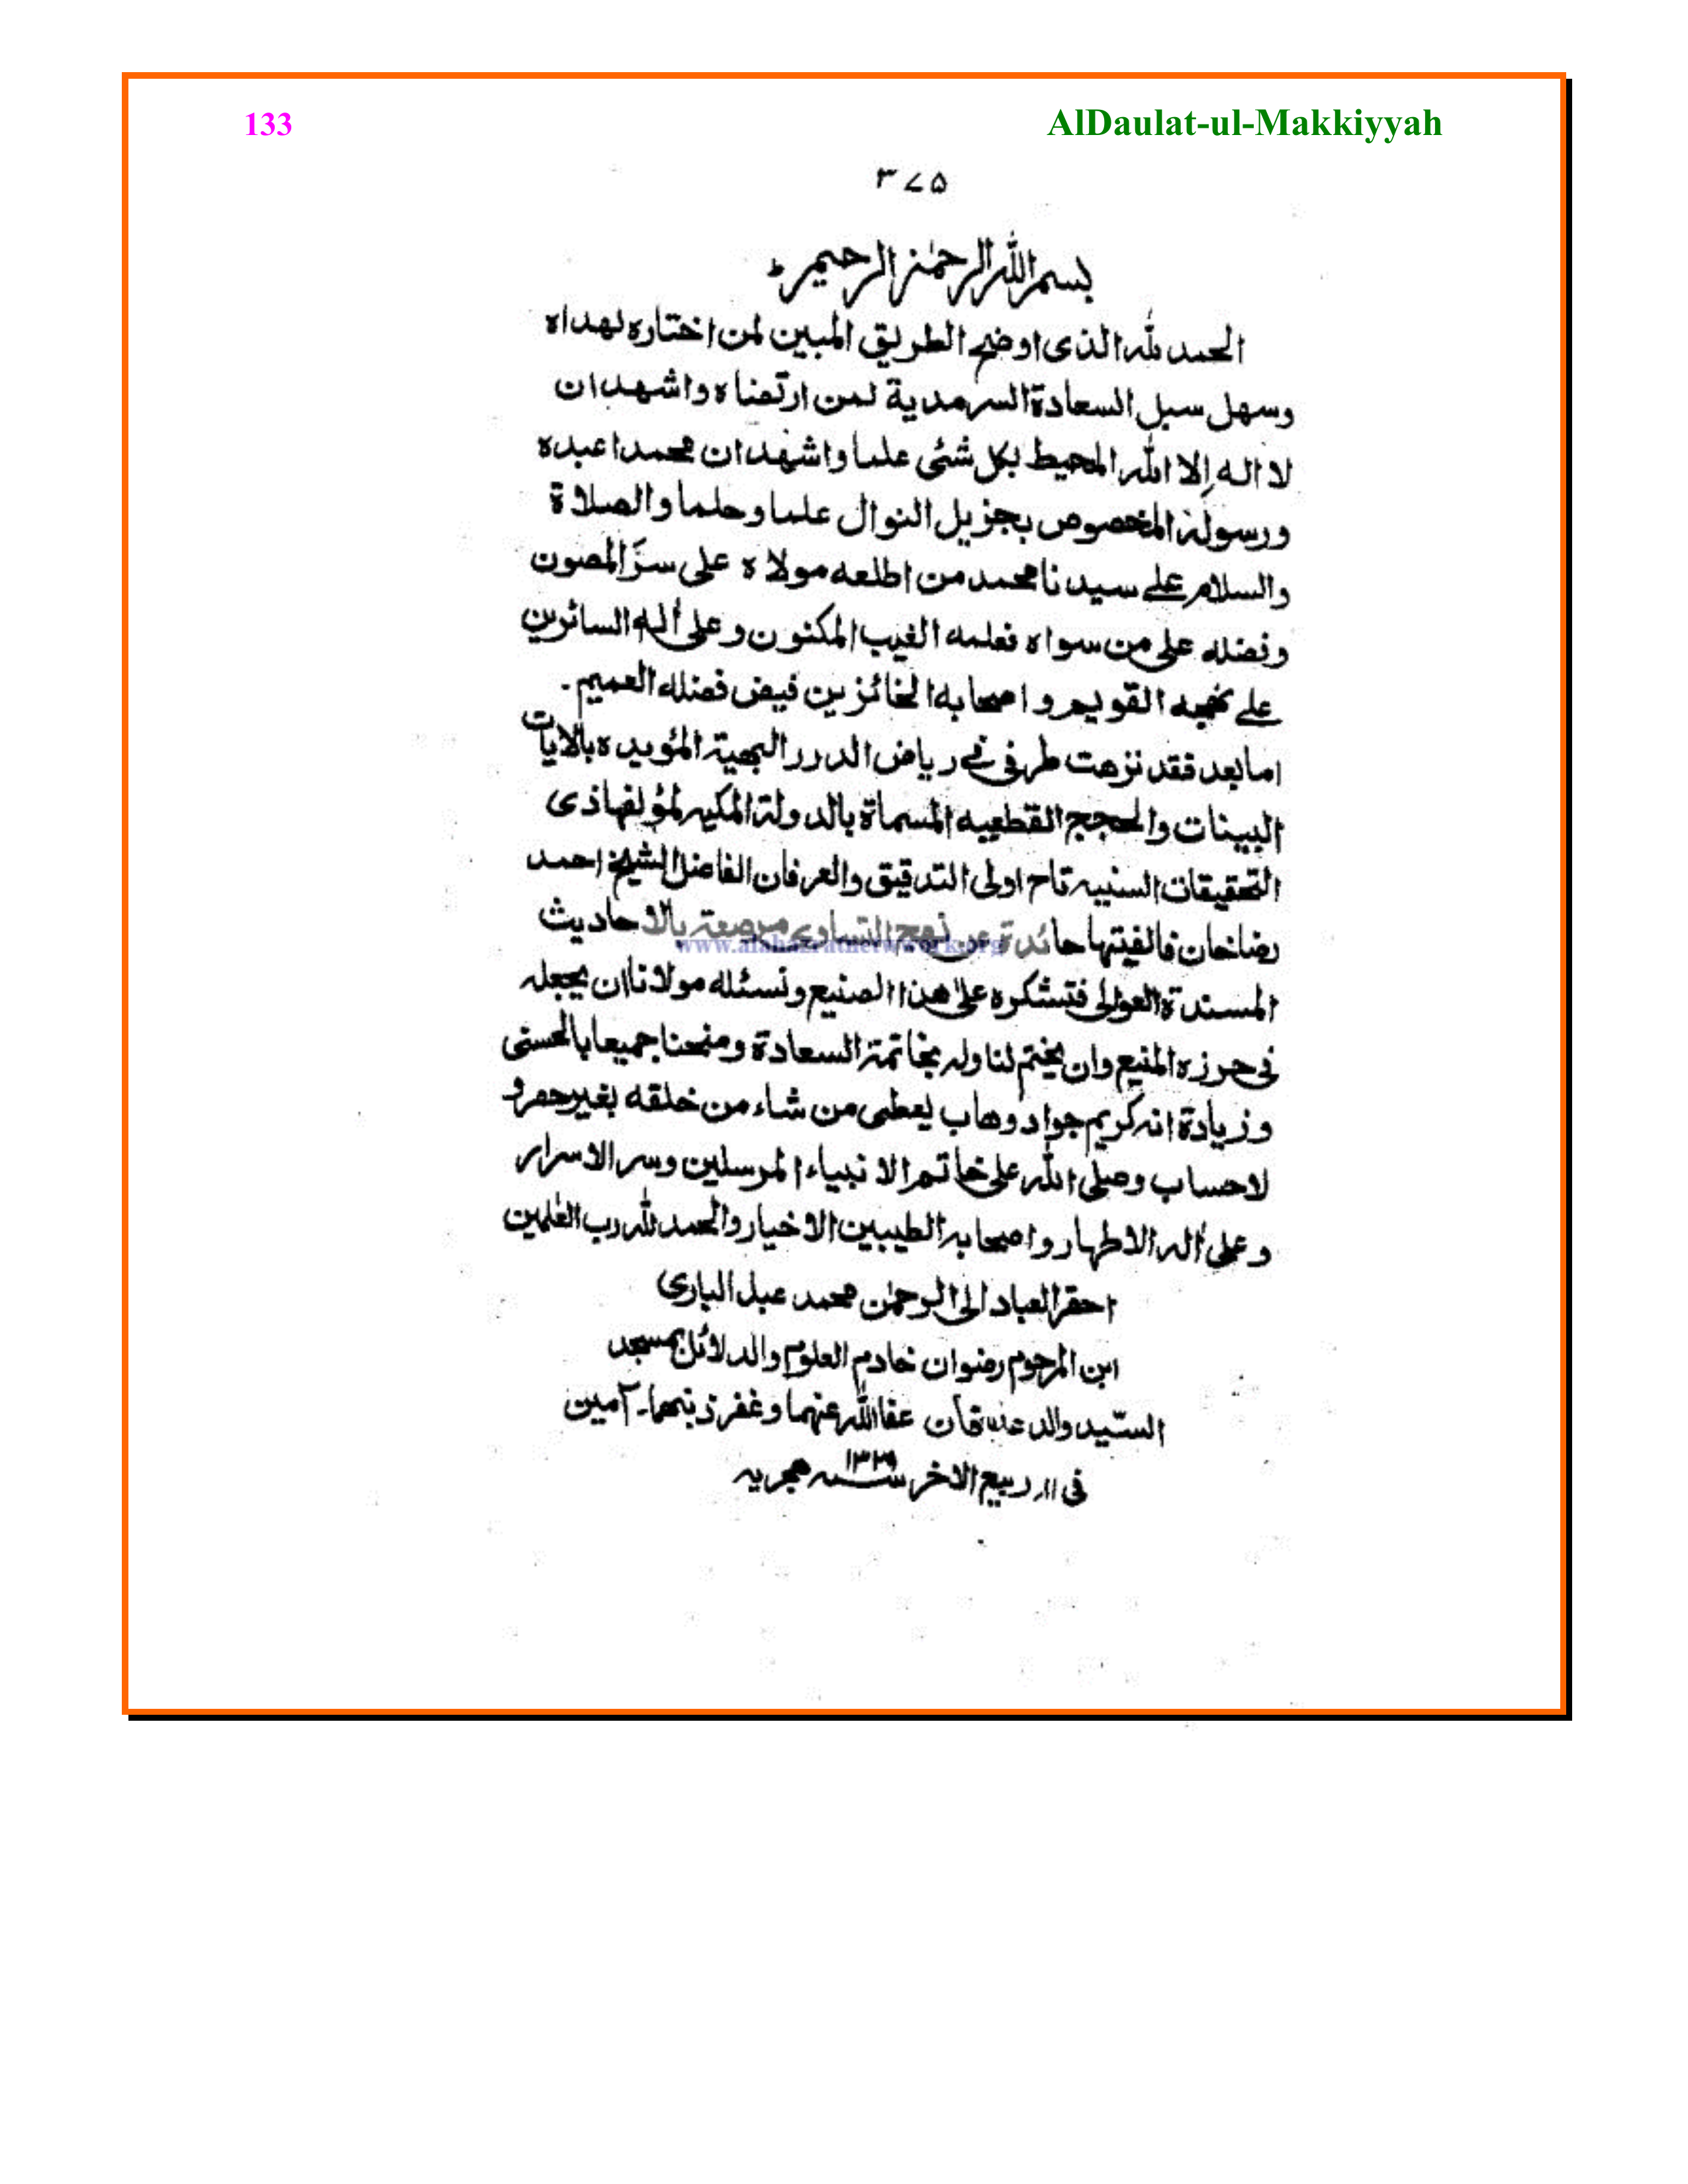 133 AlDaulat-ul-Makkiyyah
٣٧٥
بسم الله الرحمٰن الرحيم ط
الحمد لله الذى اوضح الطريق المبين لمن اختاره لهداه
وسهل سبل السعادة السرمدية لمن ارتضاه واشهد ان
لا اله إلا الله المحيط بكل شئى علما واشهد ان محمدا عبده
ورسوله المخصوص بجزيل النوال علما وحلما والصلاة
والسلام على سيدنا محمد من اطلعه مولاه على سرّ المصون
وفضله على من سواه فعلمه الغيب المكنون وعلى أله السائرين
على نهجه القويم واصحابه الخائزين فيض فضله العميم۔
اما بعد فقد نزهت طرفى فى رياض الدرر البهية المؤيده بالايات
البينات والحجج القطعيه المسماة بالدولة المكيه لمؤلفها ذى
التحقيقات السنيه تاح اولى التدقيق والعرفان الفاضل الشيخ احمد
رضاخان فالفيتها حائدة عن نهج مرصعة بالاحاديث
www.alahazratnetwork.org
المسندة العوالى فتشكره على هذا الصنيع ونسئله مولانا ان يجعله
فى حرزه المنيع وان يختم لنا وله بخاتمة السعادة ومنحنا جميعا بالحسنى
وزيادة انه كريم جواد وهاب يعطى من شاء من خلقه بغير حصر و
لاحساب وصلى الله على خاتم الانبياء المرسلين وسر الاسرار
وعلى أله الاطهار واصحابه الطيبين الاخيار والحمد لله رب العٰلمين
احقر العباد الى الرحمٰن محمد عبد البارى
ابن المرحوم رضوان خادم العلوم والدلائل بمسجد
السيّد والد عفا الله عنهما وغفر ذنبهما۔ آمين
فى ١١ ربيع الاخر سنه ١٣٢٩ هجريه